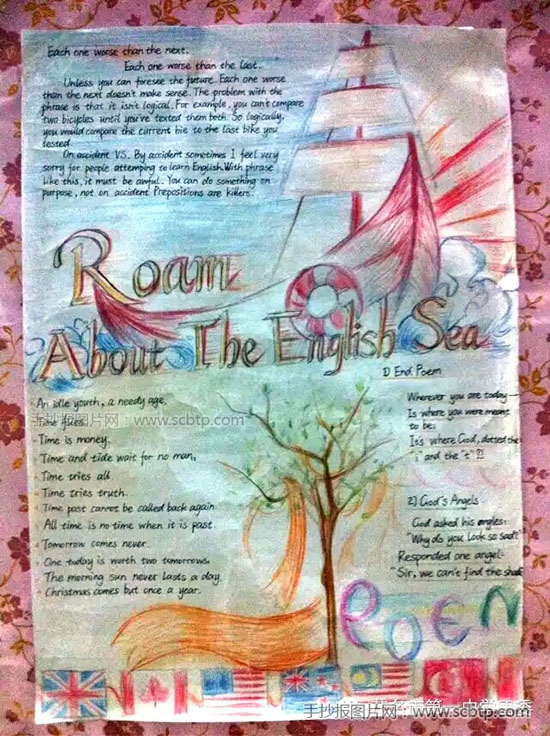 Each one worse than the next.
Each one worse than the last..
Unless you can foresee the future. Each one worse
than the next doesn't make sense. The problem with the
phrase is that it isn't logical. For example, you can't compare
two bicycles until you've texted them both. So logically,
you would compare the current bie to the last bike you
tested.
On avcident VS. By accident sometimes I feel very
sorry for people attemping to learn English. With phrase
like this, it must be awful. You can do something on
purpose, not on accident Prepositions are killers.
Roam
About The English Sea
An idle youth, a needy age.
Time flies.
手抄报图片网：www.scbtp.com
Time is money.
Time and tide wait for no man,
Time tries all
Time tries truth.
Time past cannot be called back again
All time is no time when it is past.
Tomorrow comes never.
One today is worth two tomorrows.
The morning sun never lasts a day.
Christmas comes but once a year.
1) End Poem
Wherever you are today—
Is where you were meant
to be:
It's where God, dotted the
"i" and the "t" !!
2) God's Angels
God asked his angles:
"Why do you look so sad?"
Responded one angel:
"Sir, we can't find the shade
POEM
手抄报图片网：www.scbtp.com